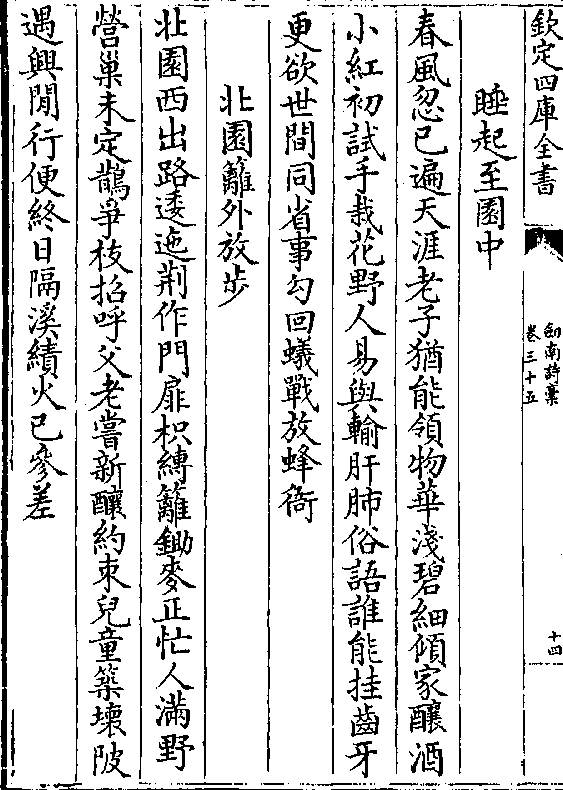 欽定四庫全書
劍南詩稾
卷三十五
十四
睡起至園中
春風忽已遍天涯老子猶能領物華淺碧細傾家釀酒
小紅初試手栽花野人易與輸肝肺俗語誰能挂齒牙
更欲世間同省事勾回蟻戰放蜂衙
北園籬外放步
北園西出路逶迤荆作門扉枳縛籬鋤麥正忙人滿野
營巢未定鵲爭枝招呼父老嘗新釀約束兒童築壊陂
遇興閒行便終日隔溪績火已參差